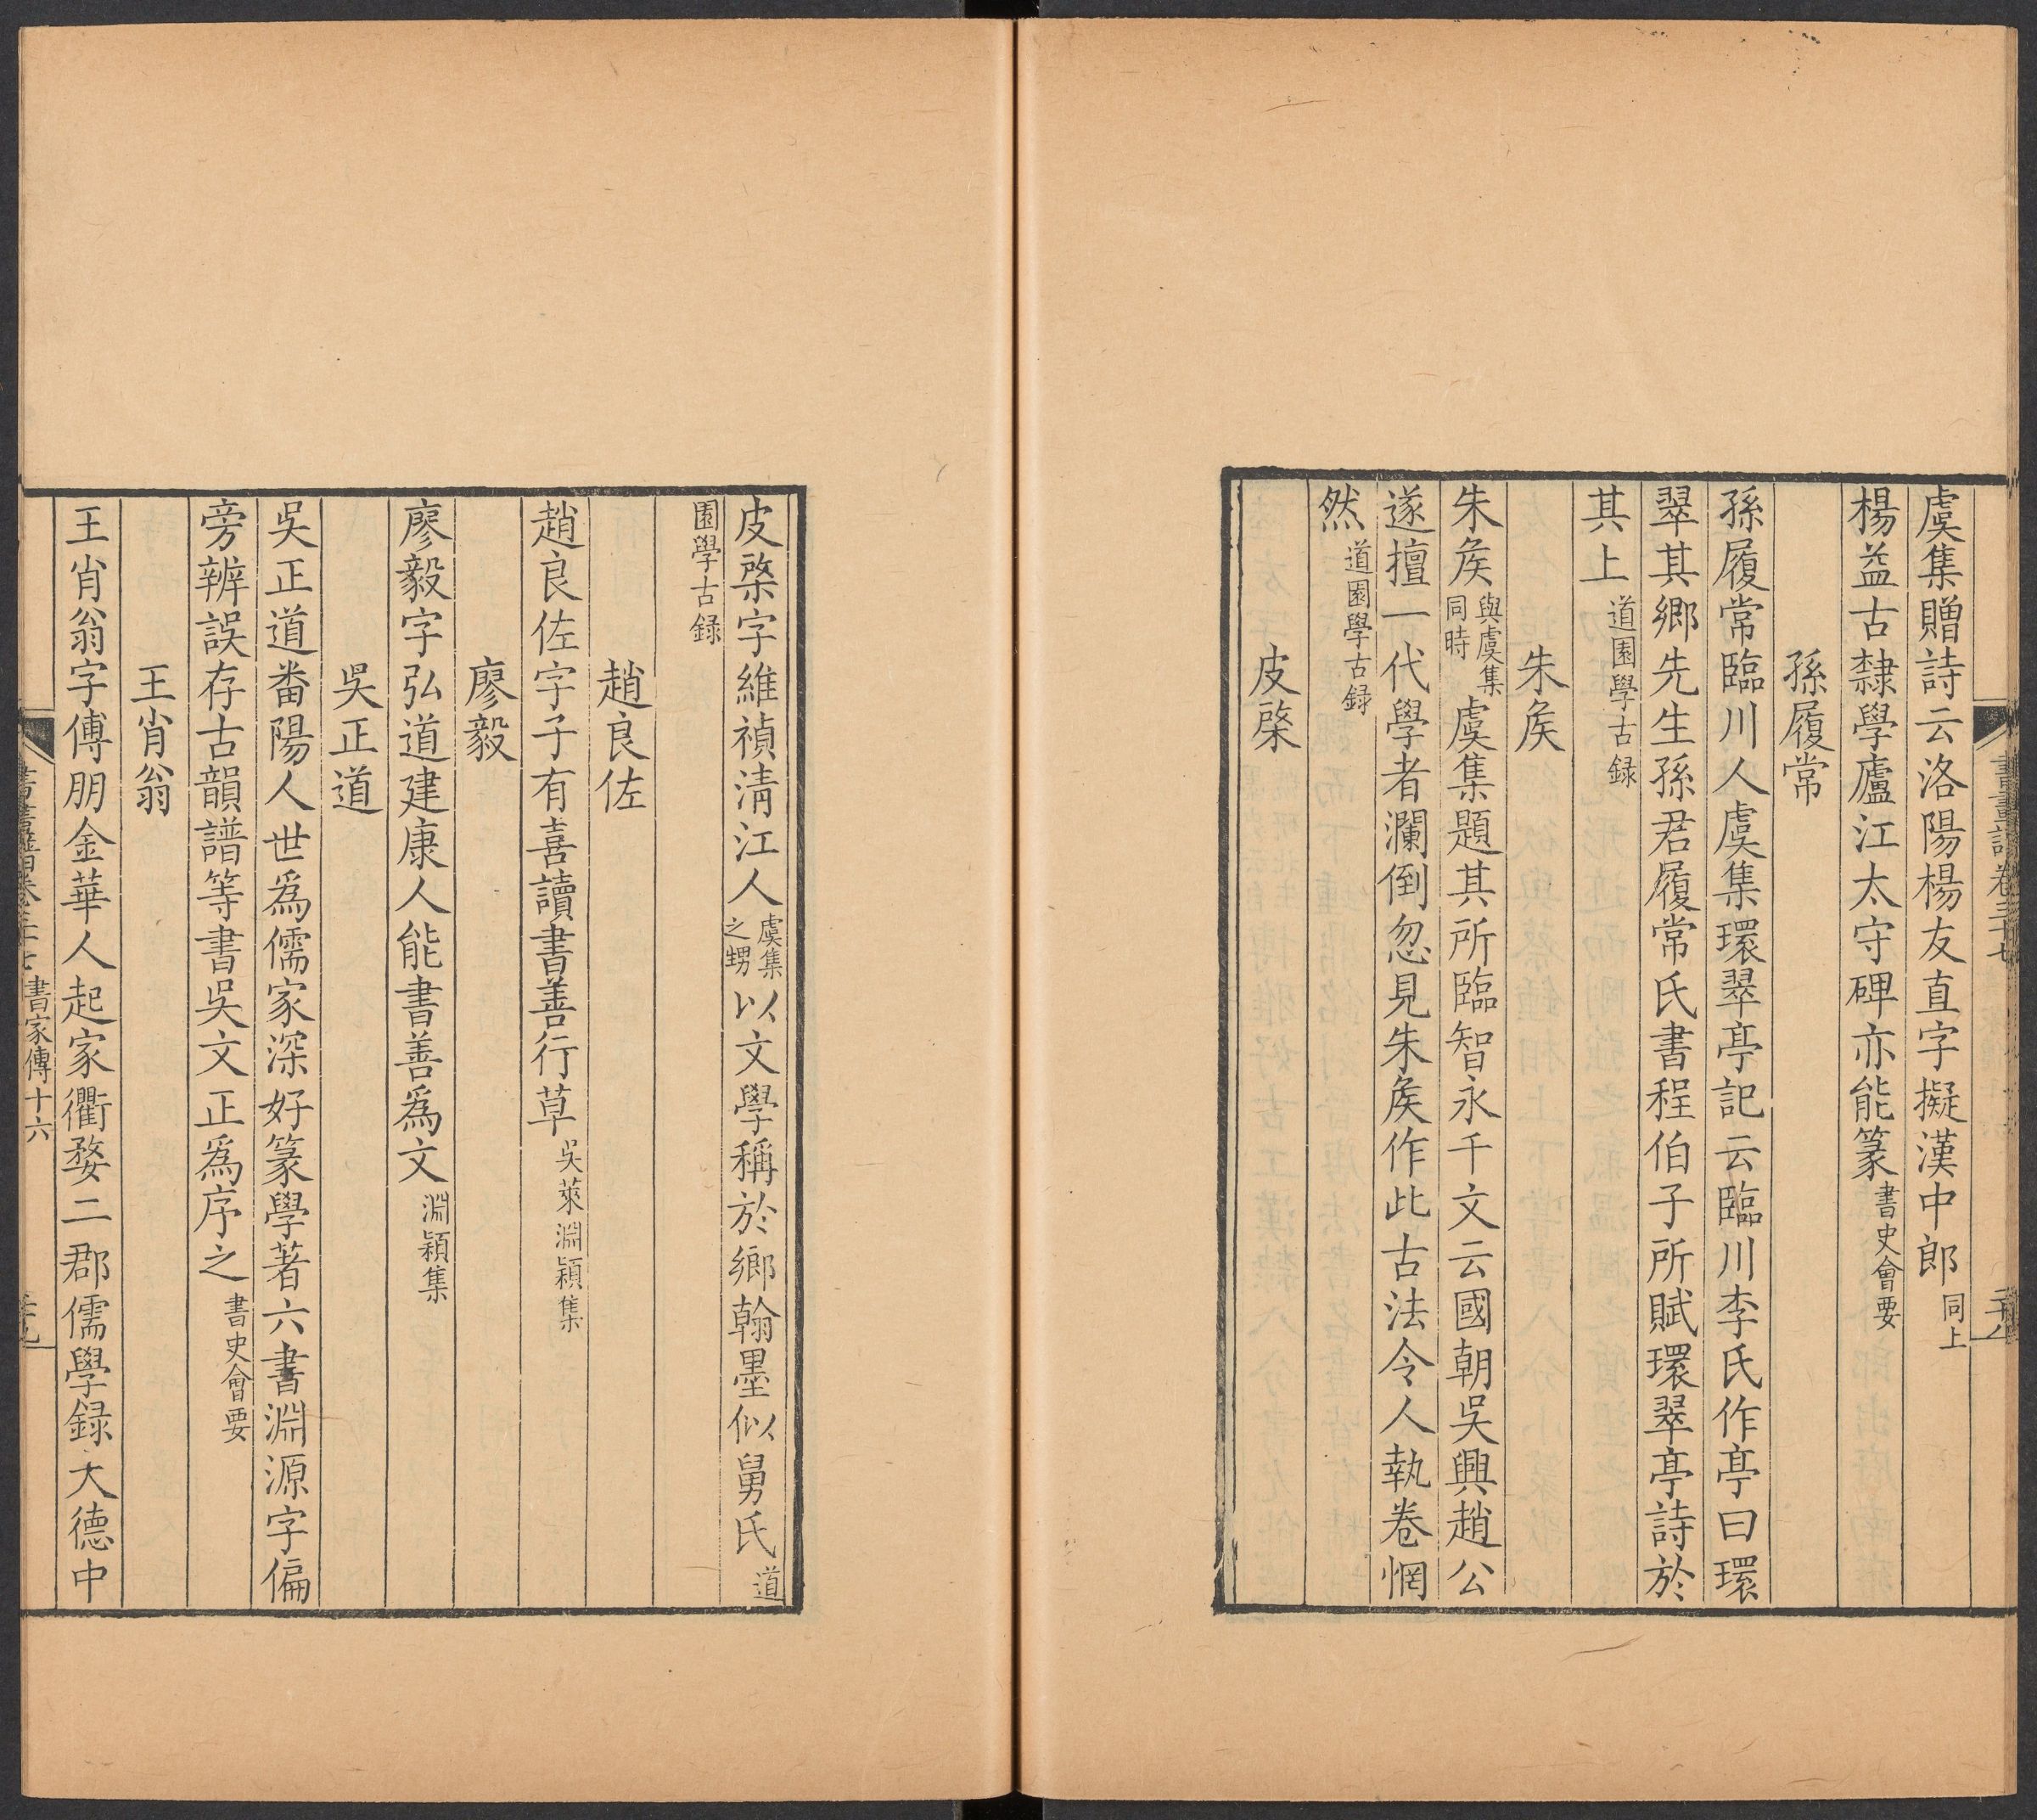 虞集贈詩云洛陽楊友直字擬漢中郎同上
楊益古隸學廬江太守碑亦能篆書史會要
孫履常
孫履常臨川人虞集環翠亭記云臨川李氏作亭曰環
翠其鄉先生孫君履常氏書程伯子所賦環翠亭詩於
其上道園學古録
朱矦
朱矦與虞集同時虞集題其所臨智永千文云國朝吳興趙公
遂擅一代學者瀾倒忽見朱矦作此古法令人執卷惘
然道園學古録
皮棨
皮棨字維禎清江人虞集之甥以文學稱於鄉翰墨似舅氏道
園學古録
趙良佐
趙良佐字子有喜讀書善行草吳萊淵穎集
廖毅
廖毅字弘道建康人能書善爲文淵穎集
吳正道
吳正道番陽人世爲儒家深好篆學著六書淵源字偏
旁辨誤存古韻譜等書吳文正爲序之書史會要
王肖翁
王肖翁字傅朋金華人起家衢婺二郡儒學録大德中
書家傳十六